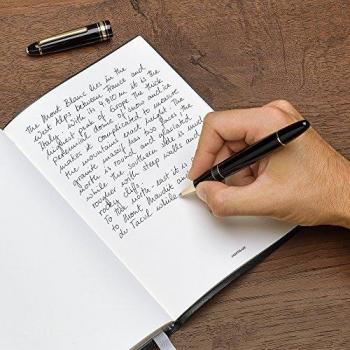 The Mont Blanc lies in the
West Alps between France and
Italy. With its 4,810 m it is the
highest peak of Europe. The thick
perennial dome of snow and ice
makes it complicated to measure
the mountain's exact height. The
granite massif has two faces: the
north is rounded and glaciated
while the southern side is much
rougher with steep walls and
rocky cliffs.
To the north-east it is
to Mont Maudit and
du Tacul while
MONTBLANC